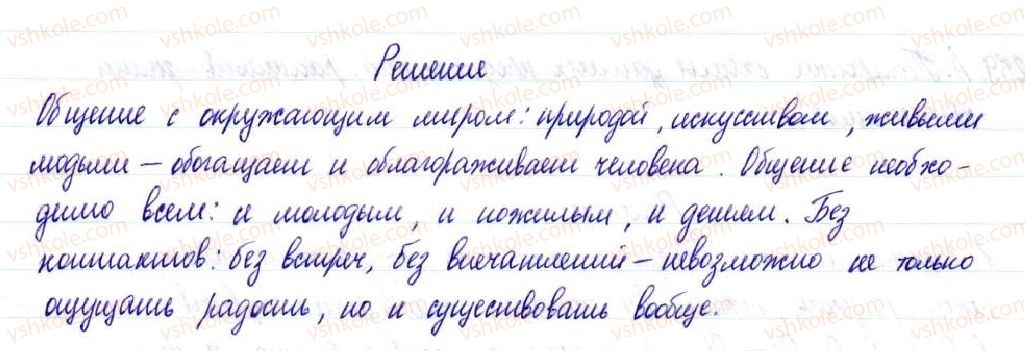 Решение
Общение с окружающим миром: природой, искусством, живыми
людьми — обогащает и облагораживает человека. Общение необхо-
димо всем: и молодым, и пожилым, и детям. Без
контактов: без встреч, без впечатлений — невозможно не только
ощущать радость, но и существовать вообще.